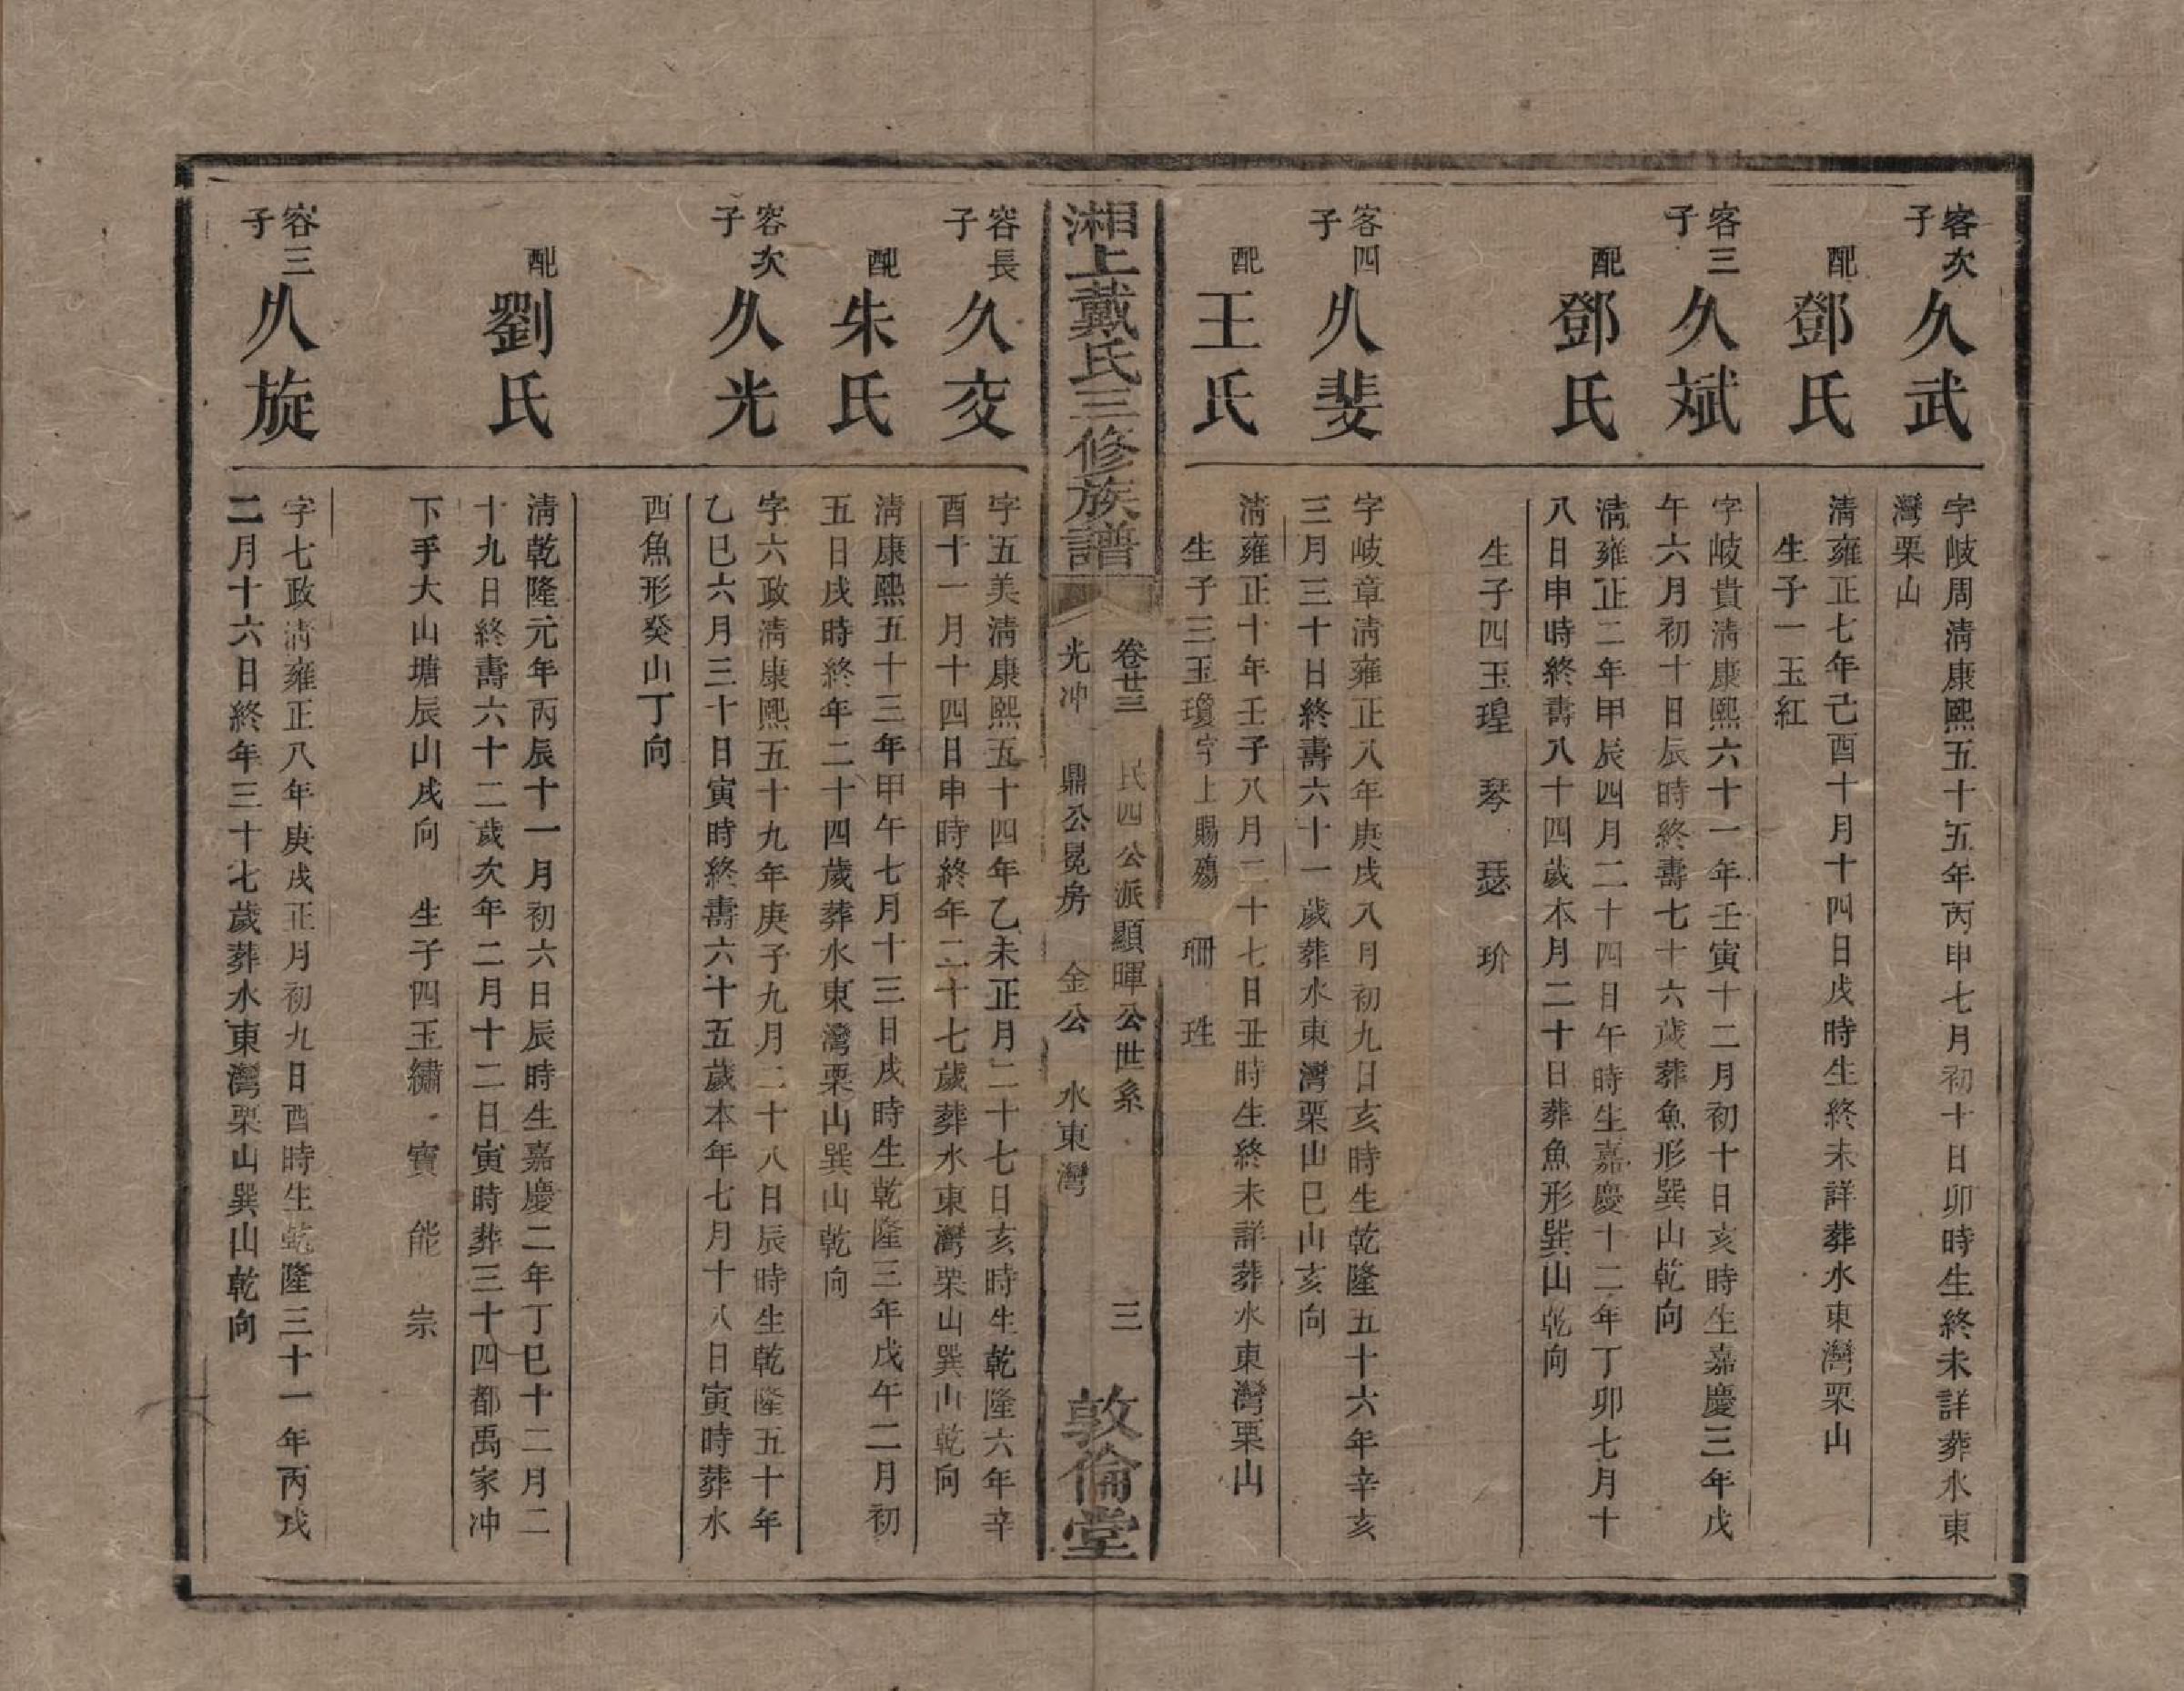 客次子
久武
字岐周淸康熙五十五年丙申七月初十日卯時生終未詳葬水東
灣栗山
配
鄧氏
淸雍正七年己酉十月十四日戌時生終未詳葬水東灣栗山
生子一玉紅
客三子
久斌
字岐貴淸康熙六十一年壬寅十二月初十日亥時生嘉慶三年戊
午六月初十日辰時終壽七十六歲葬魚形巽山乾向
配
鄧氏
淸雍正二年甲辰四月二十四日午時生嘉慶十二年丁卯七月十
八日申時終壽八十四歲本月二十日葬魚形巽山乾向
生子四玉瑝　琴　瑟　玠
客四子
久斐
字岐章淸雍正八年庚戌八月初九日亥時生乾隆五十六年辛亥
三月三十日終壽六十一歲葬水東灣栗山巳山亥向
配
王氏
淸雍正十年壬子八月二十七日丑時生終未詳葬水東灣栗山
生子三玉瓊字上賜殤　珊　珄
湘上戴氏三修族譜
卷廿三　民四公派顯暉公世系　三
光冲　鼎公冕房　金公　水東灣
敦倫堂
容長子
久交
字五美淸康熙五十四年乙未正月二十七日亥時生乾隆六年辛
酉十一月十四日申時終年二十七歲葬水東灣栗山巽山乾向
配
朱氏
淸康熙五十三年甲午七月十三日戌時生乾隆三年戊午二月初
五日戌時終年二十四歲葬水東灣栗山巽山乾向
容次子
久光
字六政淸康熙五十九年庚子九月二十八日辰時生乾隆五十年
乙巳六月三十日寅時終壽六十五歲本年七月十八日寅時葬水
西魚形癸山丁向
配
劉氏
淸乾隆元年丙辰十一月初六日辰時生嘉慶二年丁巳十二月二
十九日終壽六十二歲次年二月十二日寅時葬三十四都禹家冲
下手大山塘辰山戌向　生子四玉繡　寶　能　崇
容三子
久旋
字七政淸雍正八年庚戌正月初九日酉時生乾隆三十一年丙戌
二月十六日終年三十七歲葬水東灣栗山巽山乾向